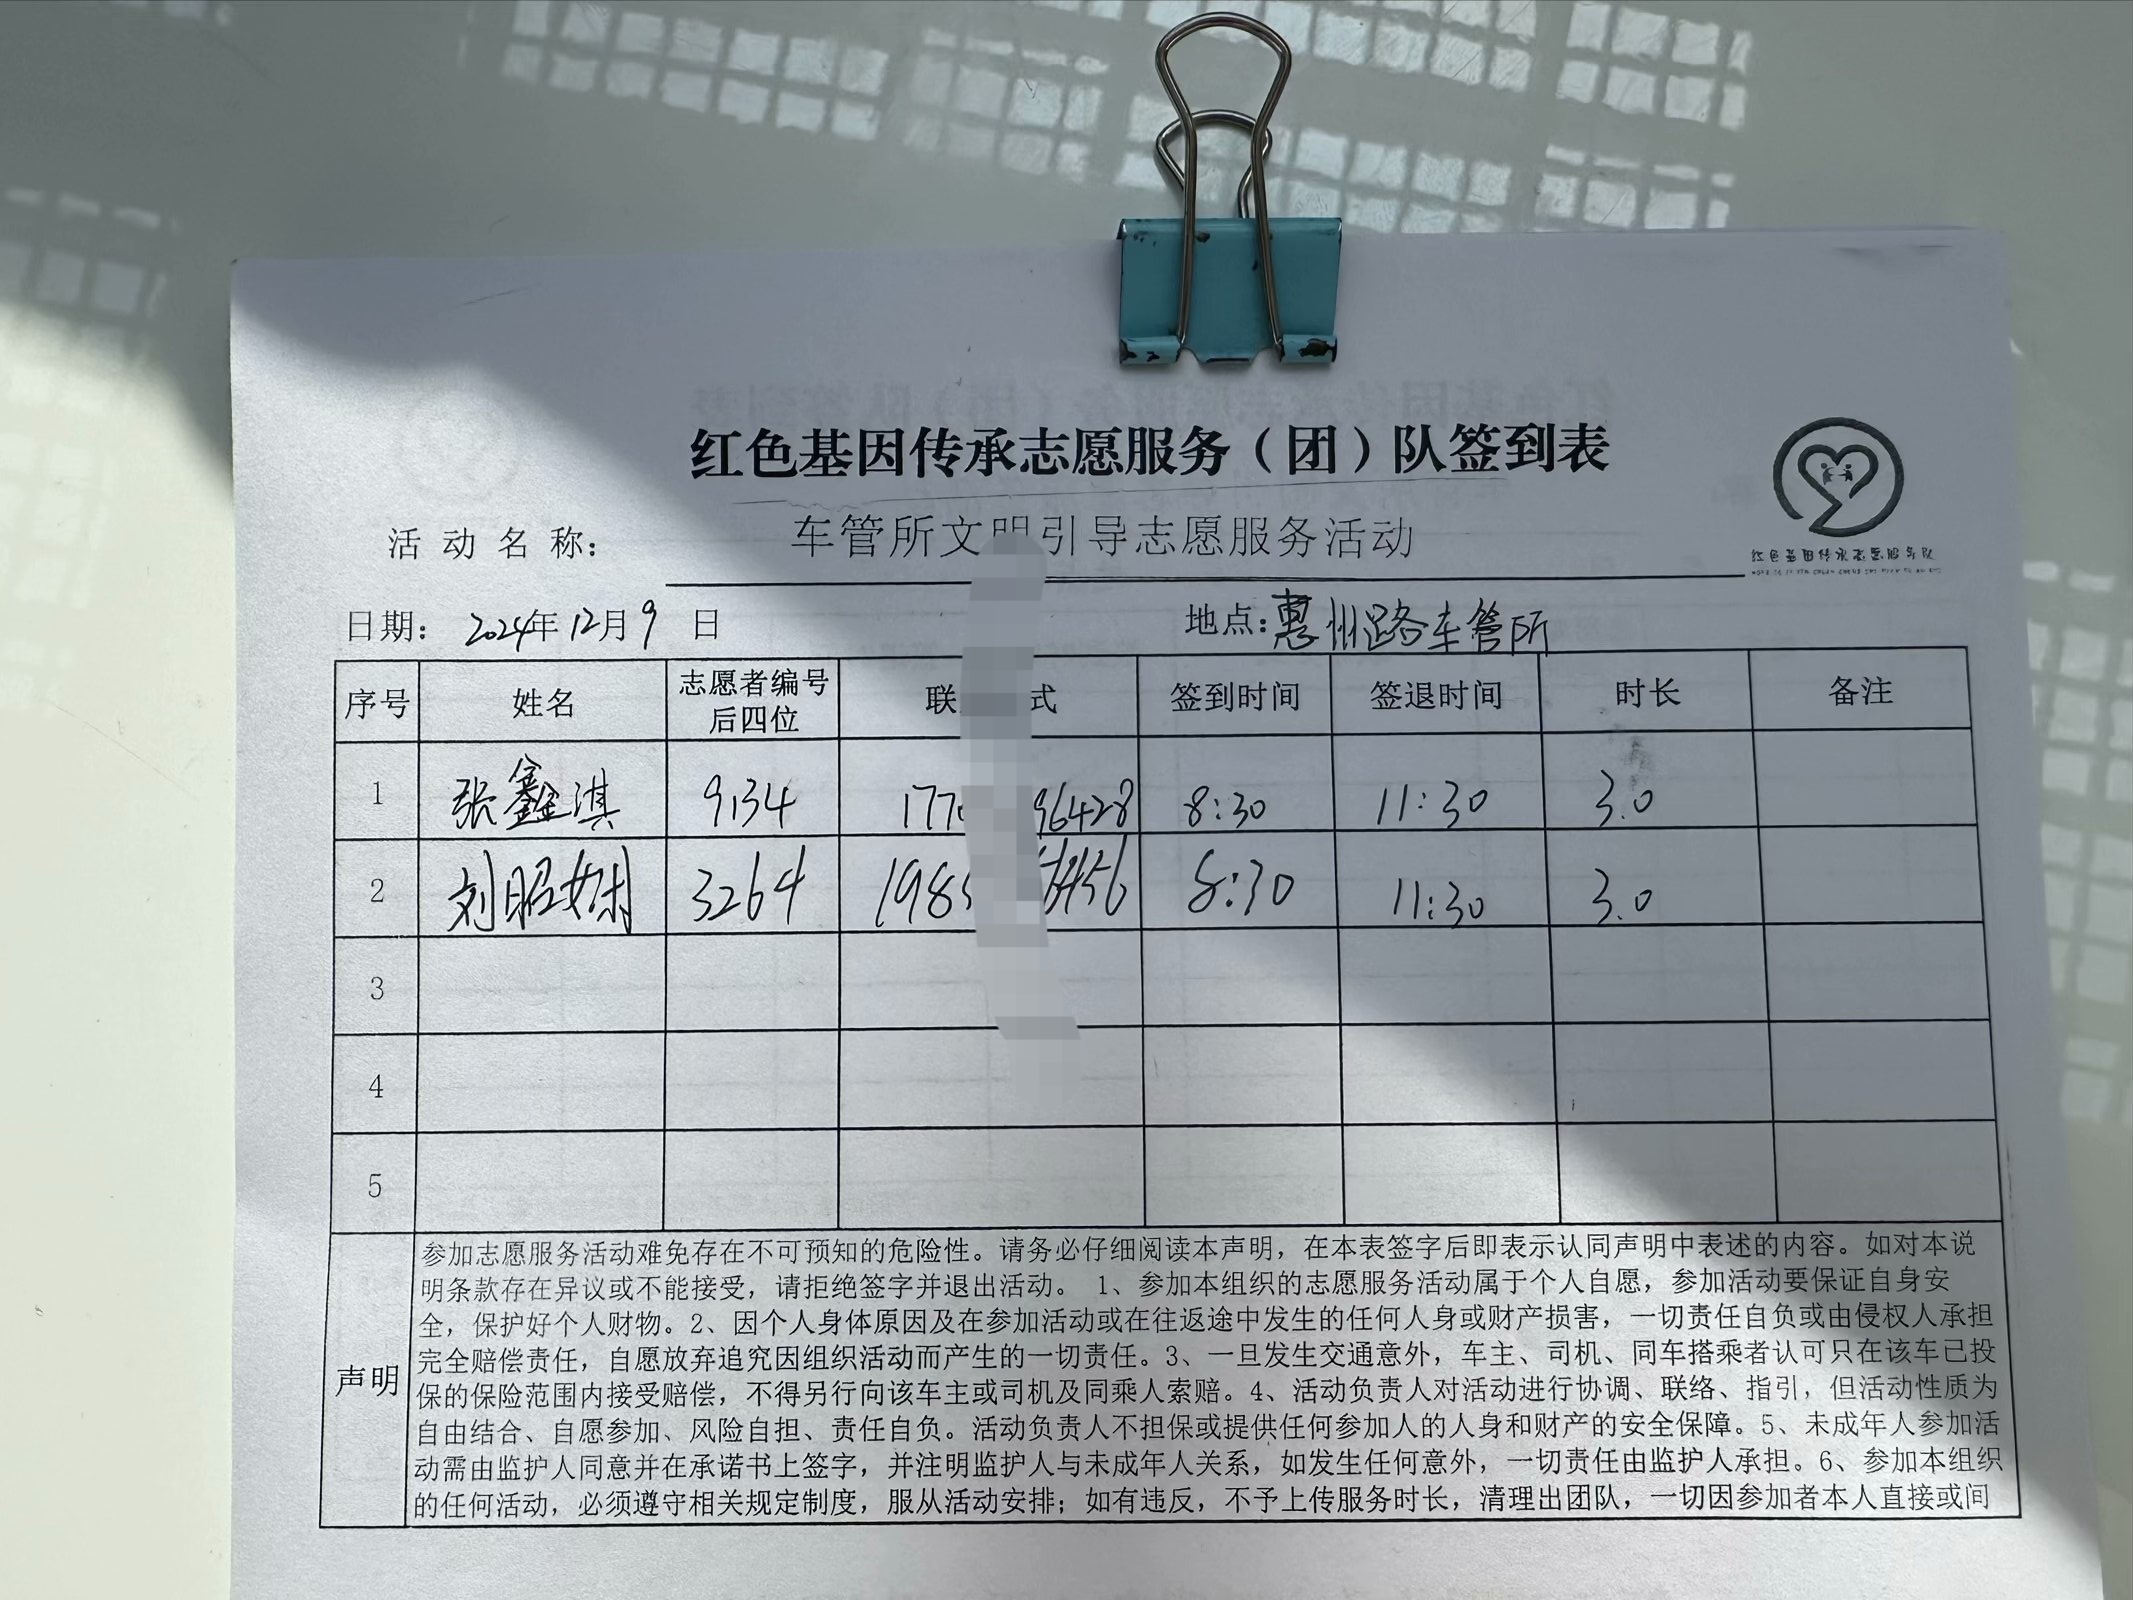 红色基因传承志愿服务（团）队签到表
活动名称： 车管所文明引导志愿服务活动
红色基因传承志愿服务队
日期： 2024年12月9日 地点：惠州路车管所
序号 姓名 志愿者编号后四位 联 式 签到时间 签退时间 时长 备注
1 张鑫淇 9134 177 96428 8:30 11:30 3.0
2 刘昭 3264 198 8:30 11:30 3.0
3
4
5
声明
参加志愿服务活动难免存在不可预知的危险性。请务必仔细阅读本声明，在本表签字后即表示认同声明中表述的内容。如对本说
明条款存在异议或不能接受，请拒绝签字并退出活动。 1、参加本组织的志愿服务活动属于个人自愿，参加活动要保证自身安
全，保护好个人财物。2、因个人身体原因及在参加活动或在往返途中发生的任何人身或财产损害，一切责任自负或由侵权人承担
完全赔偿责任，自愿放弃追究因组织活动而产生的一切责任。3、一旦发生交通意外，车主、司机、同车搭乘者认可只在该车已投
保的保险范围内接受赔偿，不得另行向该车主或司机及同乘人索赔。4、活动负责人对活动进行协调、联络、指引，但活动性质为
自由结合、自愿参加、风险自担、责任自负。活动负责人不担保或提供任何参加人的人身和财产的安全保障。5、未成年人参加活
动需由监护人同意并在承诺书上签字，并注明监护人与未成年人关系，如发生任何意外，一切责任由监护人承担。6、参加本组织
的任何活动，必须遵守相关规定制度，服从活动安排；如有违反，不予上传服务时长，清理出团队，一切因参加者本人直接或间